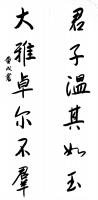 君子溫其如玉
大雅卓尔不羣